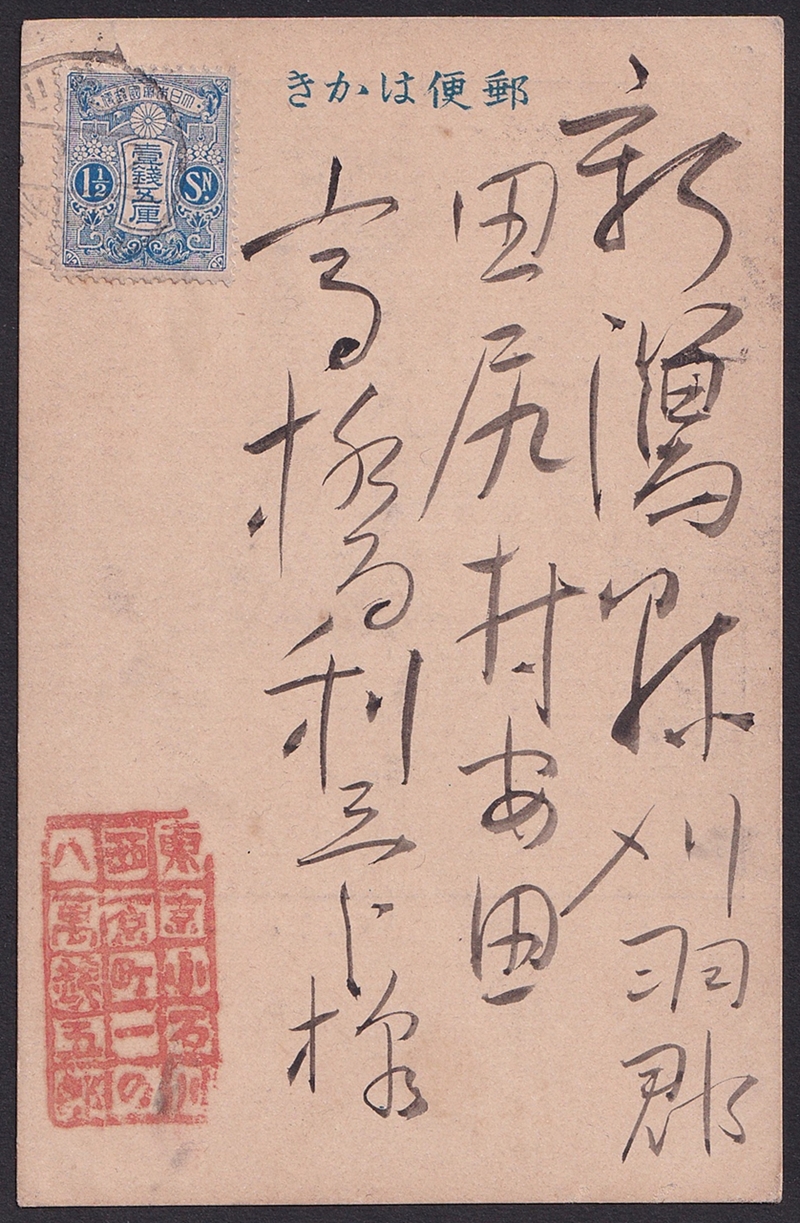 郵便はかき
大日本帝國郵便
壹錢五厘
1½ Sɴ.
新潟縣刈羽郡
田尻村安田
高橋利三郎様
東京小石川
西原町二の
八萬鐵五郎